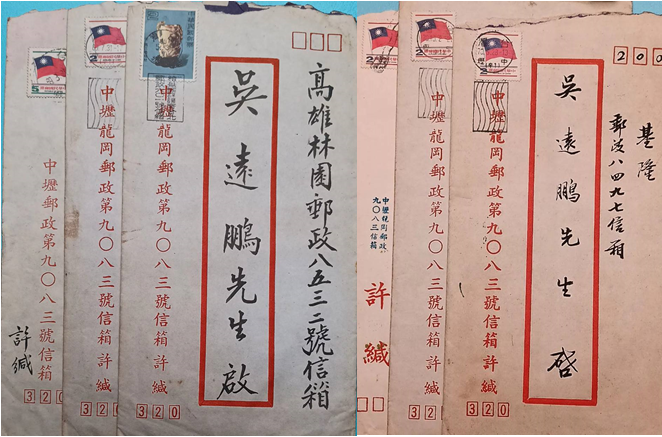 高雄林園郵政八五三二號信箱
吳遠鵬先生啟
中壢龍岡郵政第九〇八三號信箱許緘
320
中壢龍岡郵政第九〇八三號信箱許緘
32
中壢郵政第九〇八三號信箱
許緘
320
5
2
基隆
郵政八四九七信箱
吳遠鵬先生 啓
200
中壢龍岡郵政第九〇八三號信箱許緘
320
中壢龍岡郵政第九〇八三號信箱許緘
32
中壢龍岡郵政
九〇八三信箱
許緘
2
2
2